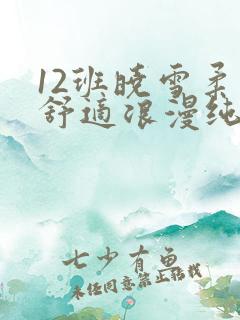 12班晓雪柔
舒适浪漫纯
七少有鱼
未经同意禁止转载